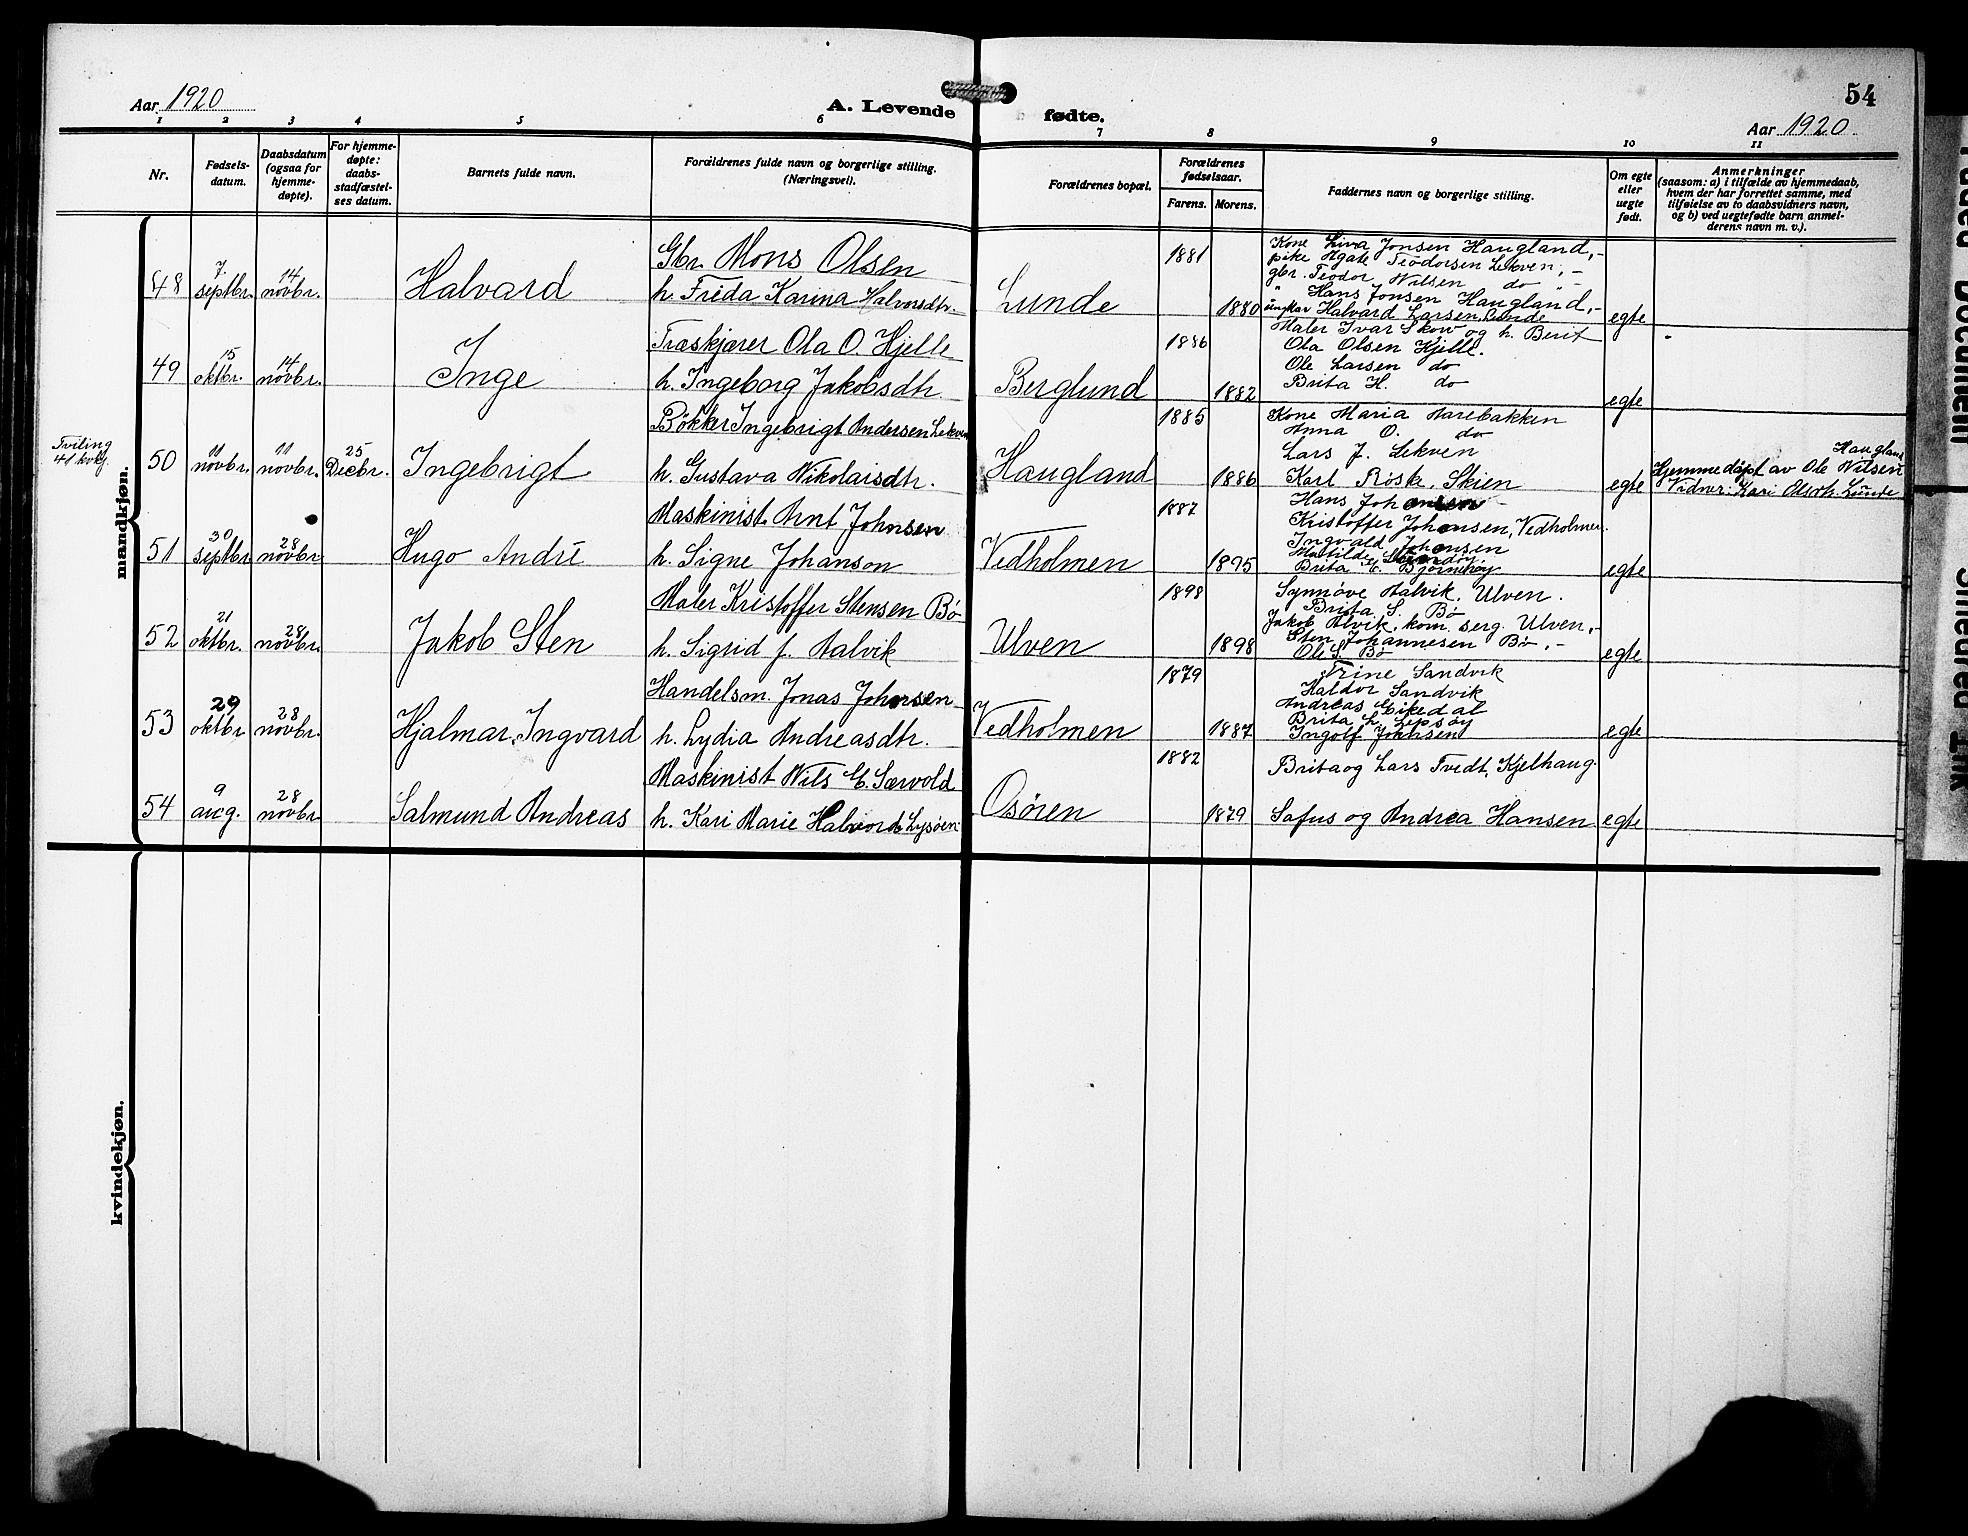 Aar 1920
A. Levende fødte.
54
Aar 1920
1 2 3 4 5 6 7 8 9 10 11
Nr.
Fødsels-
datum.
Daabsdatum
(ogsaa for
hjemme-
døpte).
For hjemme-
døpte:
daabs-
stadfæstel-
ses datum.
Barnets fulde navn.
Forældrenes fulde navn og borgerlige stilling.
(Næringsvei).
Forældrenes bopæl.
Forældrenes
fødselsaar.
Farens. Morens.
Faddernes navn og borgerlige stilling.
Om egte
eller
uegte
født.
Anmerkninger
(saasom: a) i tilfælde av hjemmedaab,
hvem der har forrettet samme, med
tilføielse av to daabsvidners navn,
og b) ved uegtefødte barn anmel-
derens navn m. v.).
mandkjøn.
48
7.
septbr.
14
novbr.
Halvard
Gbr. Mons Olsen
h. Frida Karina Halvorsdtr.
Lunde
1881
1880
Kone Liva Jonsen Haugland,-
pike Agate Teodorsen Lekven,-
gbr. Teodor Nilsen do -
" Hans Jonsen Haugland,-
ungkar Halvard Larsen Lunde
egte
49
15
oktbr.
14
novbr.
Inge
Træskjærer Ola O. Hjelle
h. Ingeborg Jakobsdtr
Berglund
1886
1882
Maler Ivar Skow og h. Berit
Ola Olsen Hjelle.
Ole Larsen do
Brita H. do
egte
Tviling
41 kvkj.
50
11
novbr.
11
novbr.
25
Decbr.
Ingebrigt
Bøkker Ingebrigt Andersen Lekven
h. Gustava Nikolaisdtr.
Haugland
1885
1886
Kone Maria Harebakken
Anna O. do
Lars J. Lekven
Karl Røsk, Skien
egte
Haugland
Hjemmedøpt av Ole Nilsen
Vidner: Kari Olsdtr. Lunde
51
30
septbr.
28
novbr.
Hugo André
Maskinist Arnt Johnsen
h. Signe Johanson
Vedholmen
1887
1895
Hans Johansen
Kristoffer Johansen, Vedholmen.
Ingvald Johansen
Matilde
Brita E.
egte
52
21
oktbr.
28
novbr.
Jakob Sten
Maler Kristoffer Stensen Bø
h. Sigrid f. Aalvik
Ulven
1898
1898
Synnøve Aalvik, Ulven.
Brita S. Bø
Jakob Alvik, kom. serg. Ulven,-
Sten Johannesen Bø,-
Ole S. Bø
egte
53
29
oktbr
28
novbr.
Hjalmar Ingvard
Handelsm. Jonas Johnsen
h. Lydia Andreasdtr.
Vedholmen
1879
1887
Trine Sandvik
Haldor Sandvik
Andreas Eikedal
Brita L. Lepsøy
Ingolf Johnsen
egte
54
9
aug.
28
novbr
Salmund Andreas
Maskinist Nils E. Særvold
h. Kari Marie Halvords Lysøen
Osøren
1882
1879
Brita og Lars Tvedt, Kjelhaug.
Sofus og Andrea Hansen
egte
kvindekjøn.